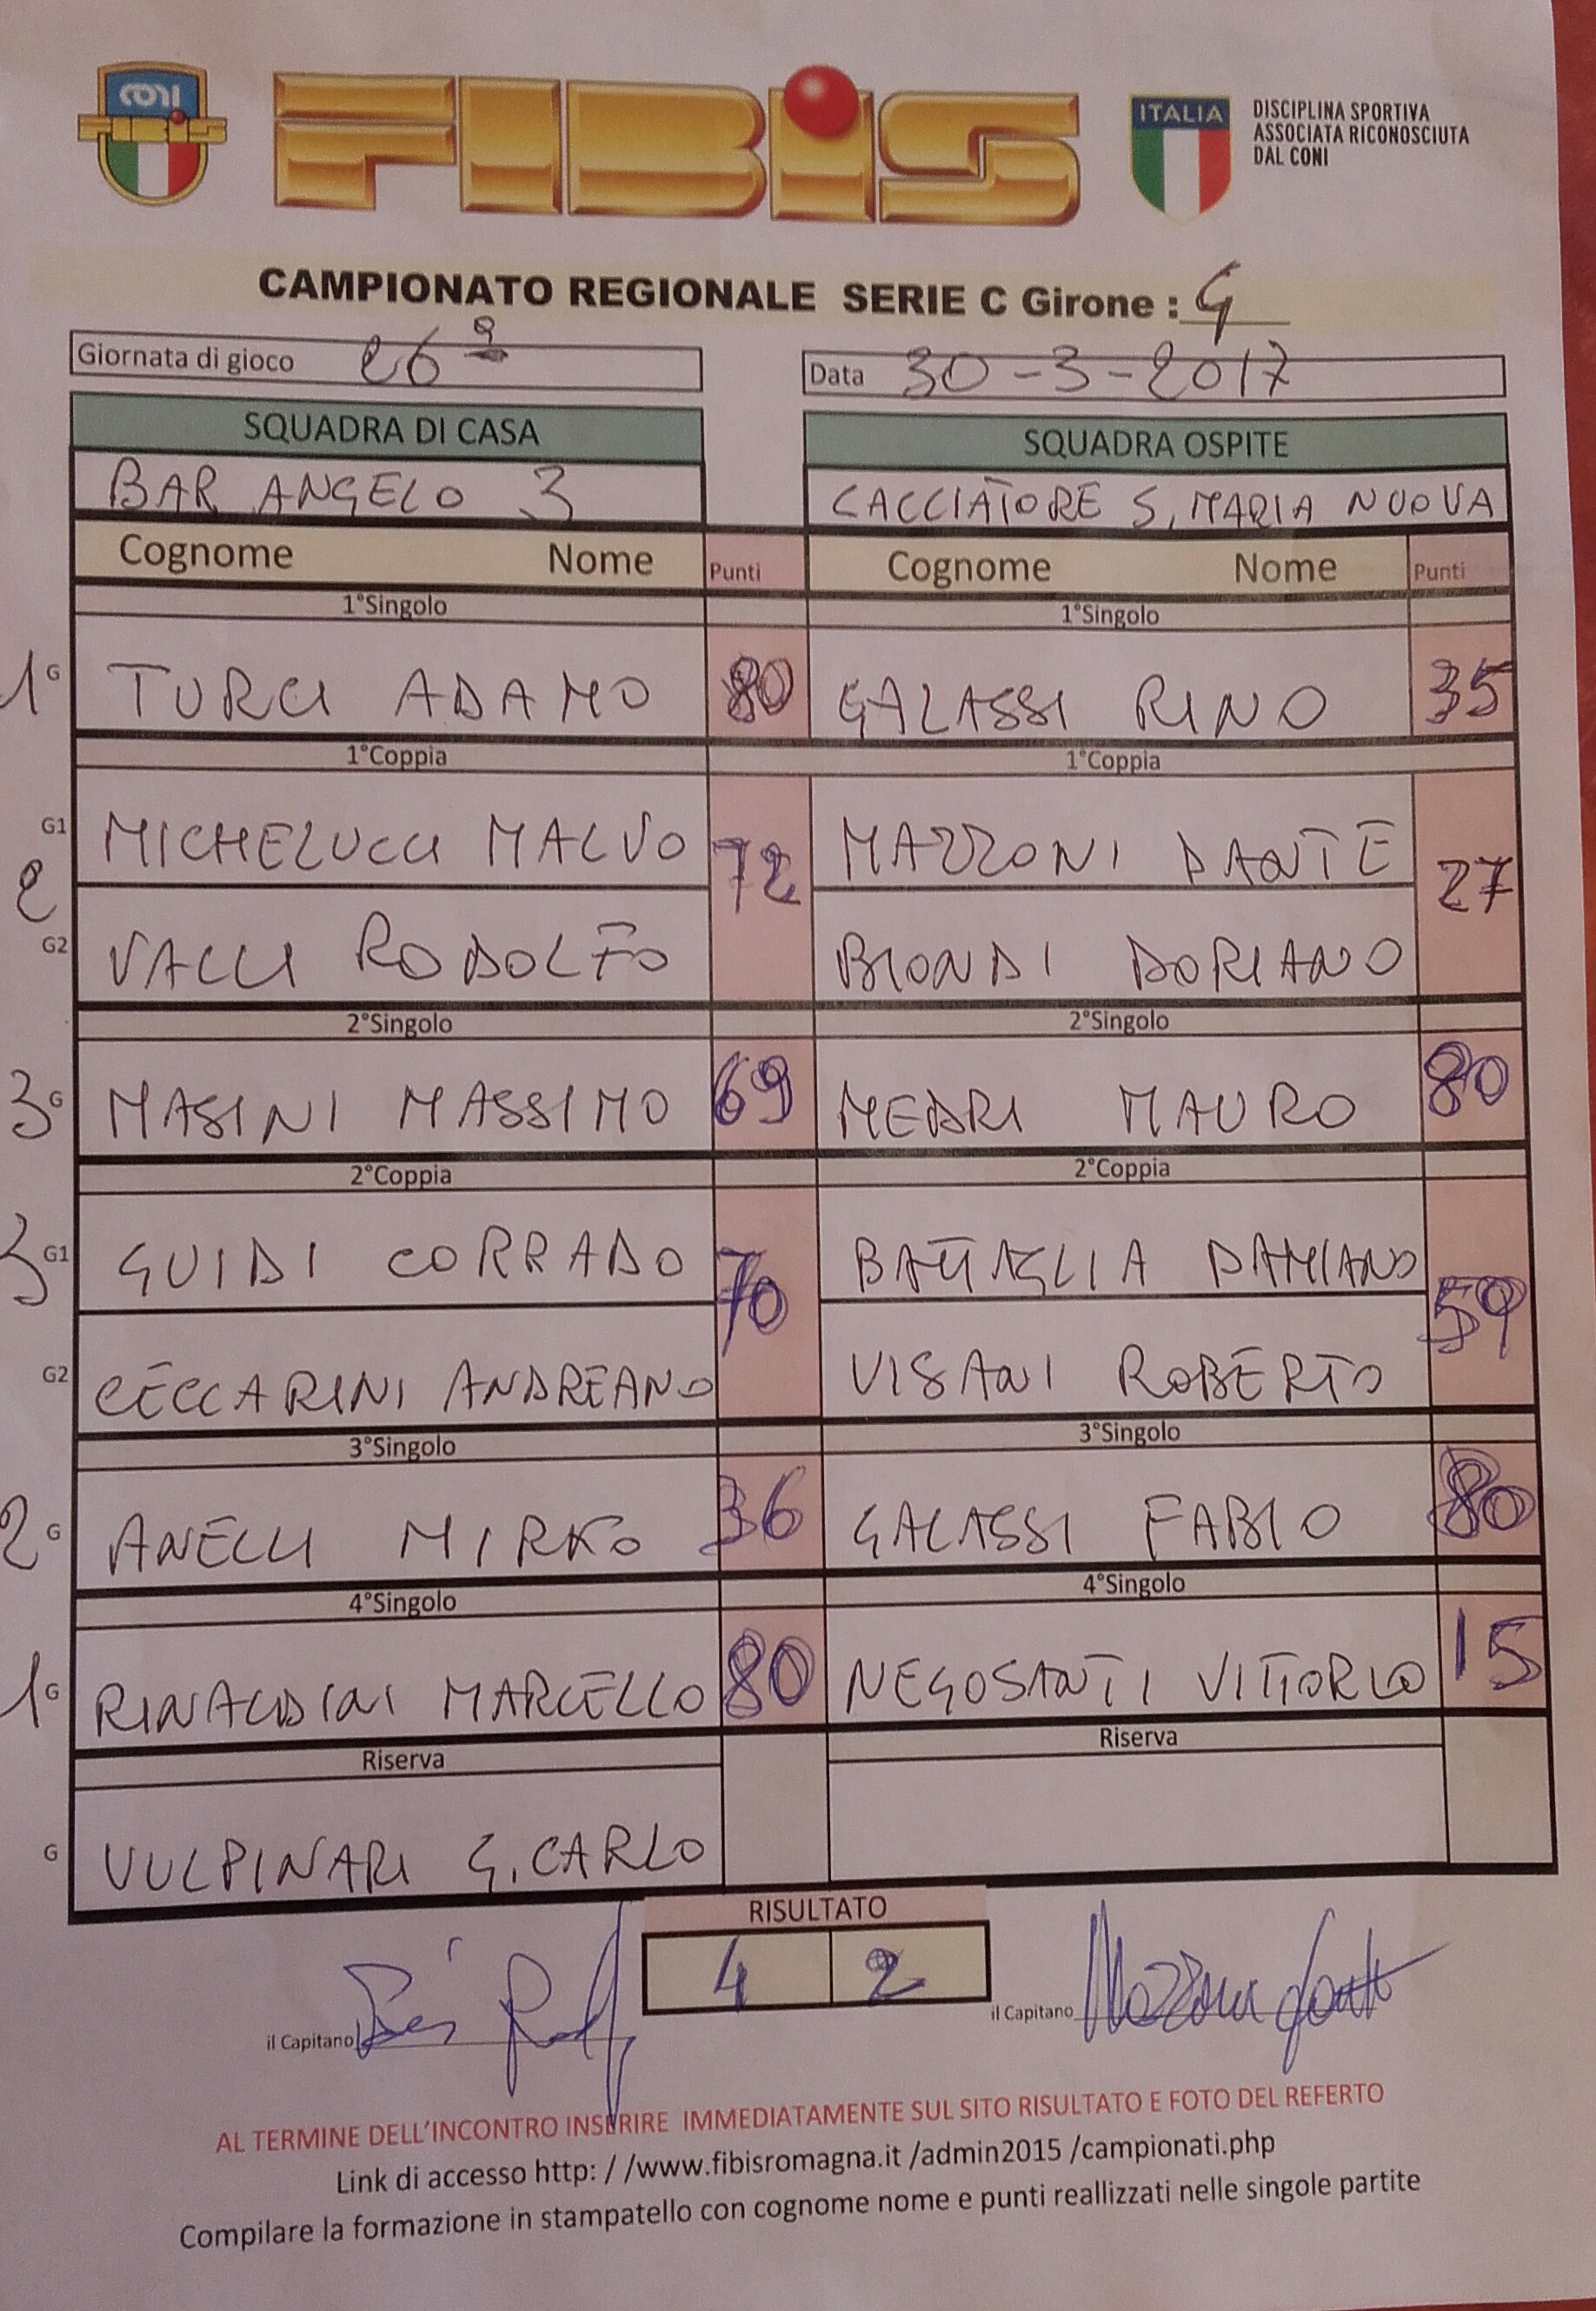 CONI
FIBIS
FIBIS
ITALIA
DISCIPLINA SPORTIVA
ASSOCIATA RICONOSCIUTA
DAL CONI
CAMPIONATO REGIONALE SERIE C Girone : G
Giornata di gioco 26ª Data 30-3-2017
SQUADRA DI CASA SQUADRA OSPITE
BAR ANGELO 3 CACCIATORE S. MARIA NUOVA
Cognome Nome Punti Cognome Nome Punti
1°Singolo 1°Singolo
1 G TURCI ADAMO 80 GALASSI RINO 35
1°Coppia 1°Coppia
G1 MICHELUCCI MALVO 72 MAZZONI DANTE 27
2
G2 VALLI RODOLFO BIONDI DORIANO
2°Singolo 2°Singolo
3 G MASINI MASSIMO 69 MEDRI MAURO 80
2°Coppia 2°Coppia
3 G1 GUIDI CORRADO 70 BATTAGLIA DAMIANO 59
G2 CECCARINI ANDREANO VISANI ROBERTO
3°Singolo 3°Singolo
2 G ANELLI MIRKO 36 GALASSI FABIO 80
4°Singolo 4°Singolo
1 G RINALDINI MARCELLO 80 NEGOSANTI VITTORIO 15
Riserva Riserva
G VULPINARI G. CARLO
RISULTATO
4 2
il Capitano il Capitano Mazzoni Dante
AL TERMINE DELL'INCONTRO INSERIRE IMMEDIATAMENTE SUL SITO RISULTATO E FOTO DEL REFERTO
Link di accesso http: / /www.fibisromagna.it /admin2015 /campionati.php
Compilare la formazione in stampatello con cognome nome e punti reallizzati nelle singole partite